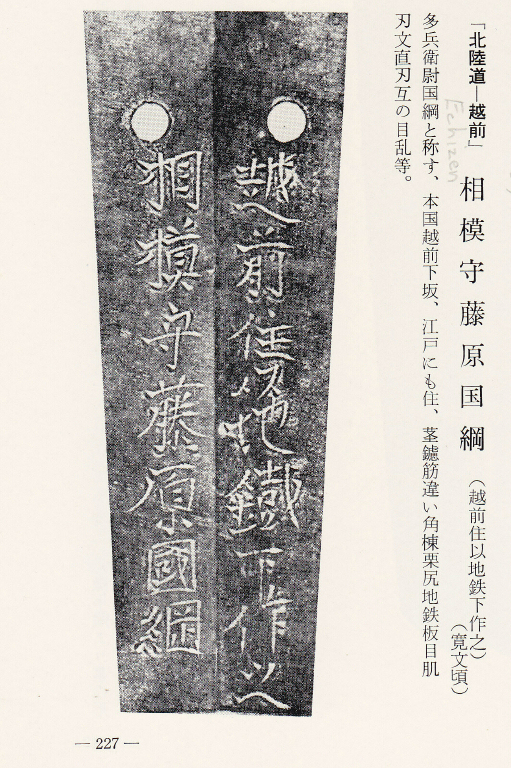 「北陸道―越前」 相模守藤原国綱 （越前住以地鉄下作之）
（寛文頃）
多兵衛尉国綱と称す、本国越前下坂、江戸にも住、茎鑢筋違い角棟栗尻地鉄板目肌
刃文直刃互の目乱等。
Echizen
越前住以地鐵下作之
相模守藤原國綱
— 227 —